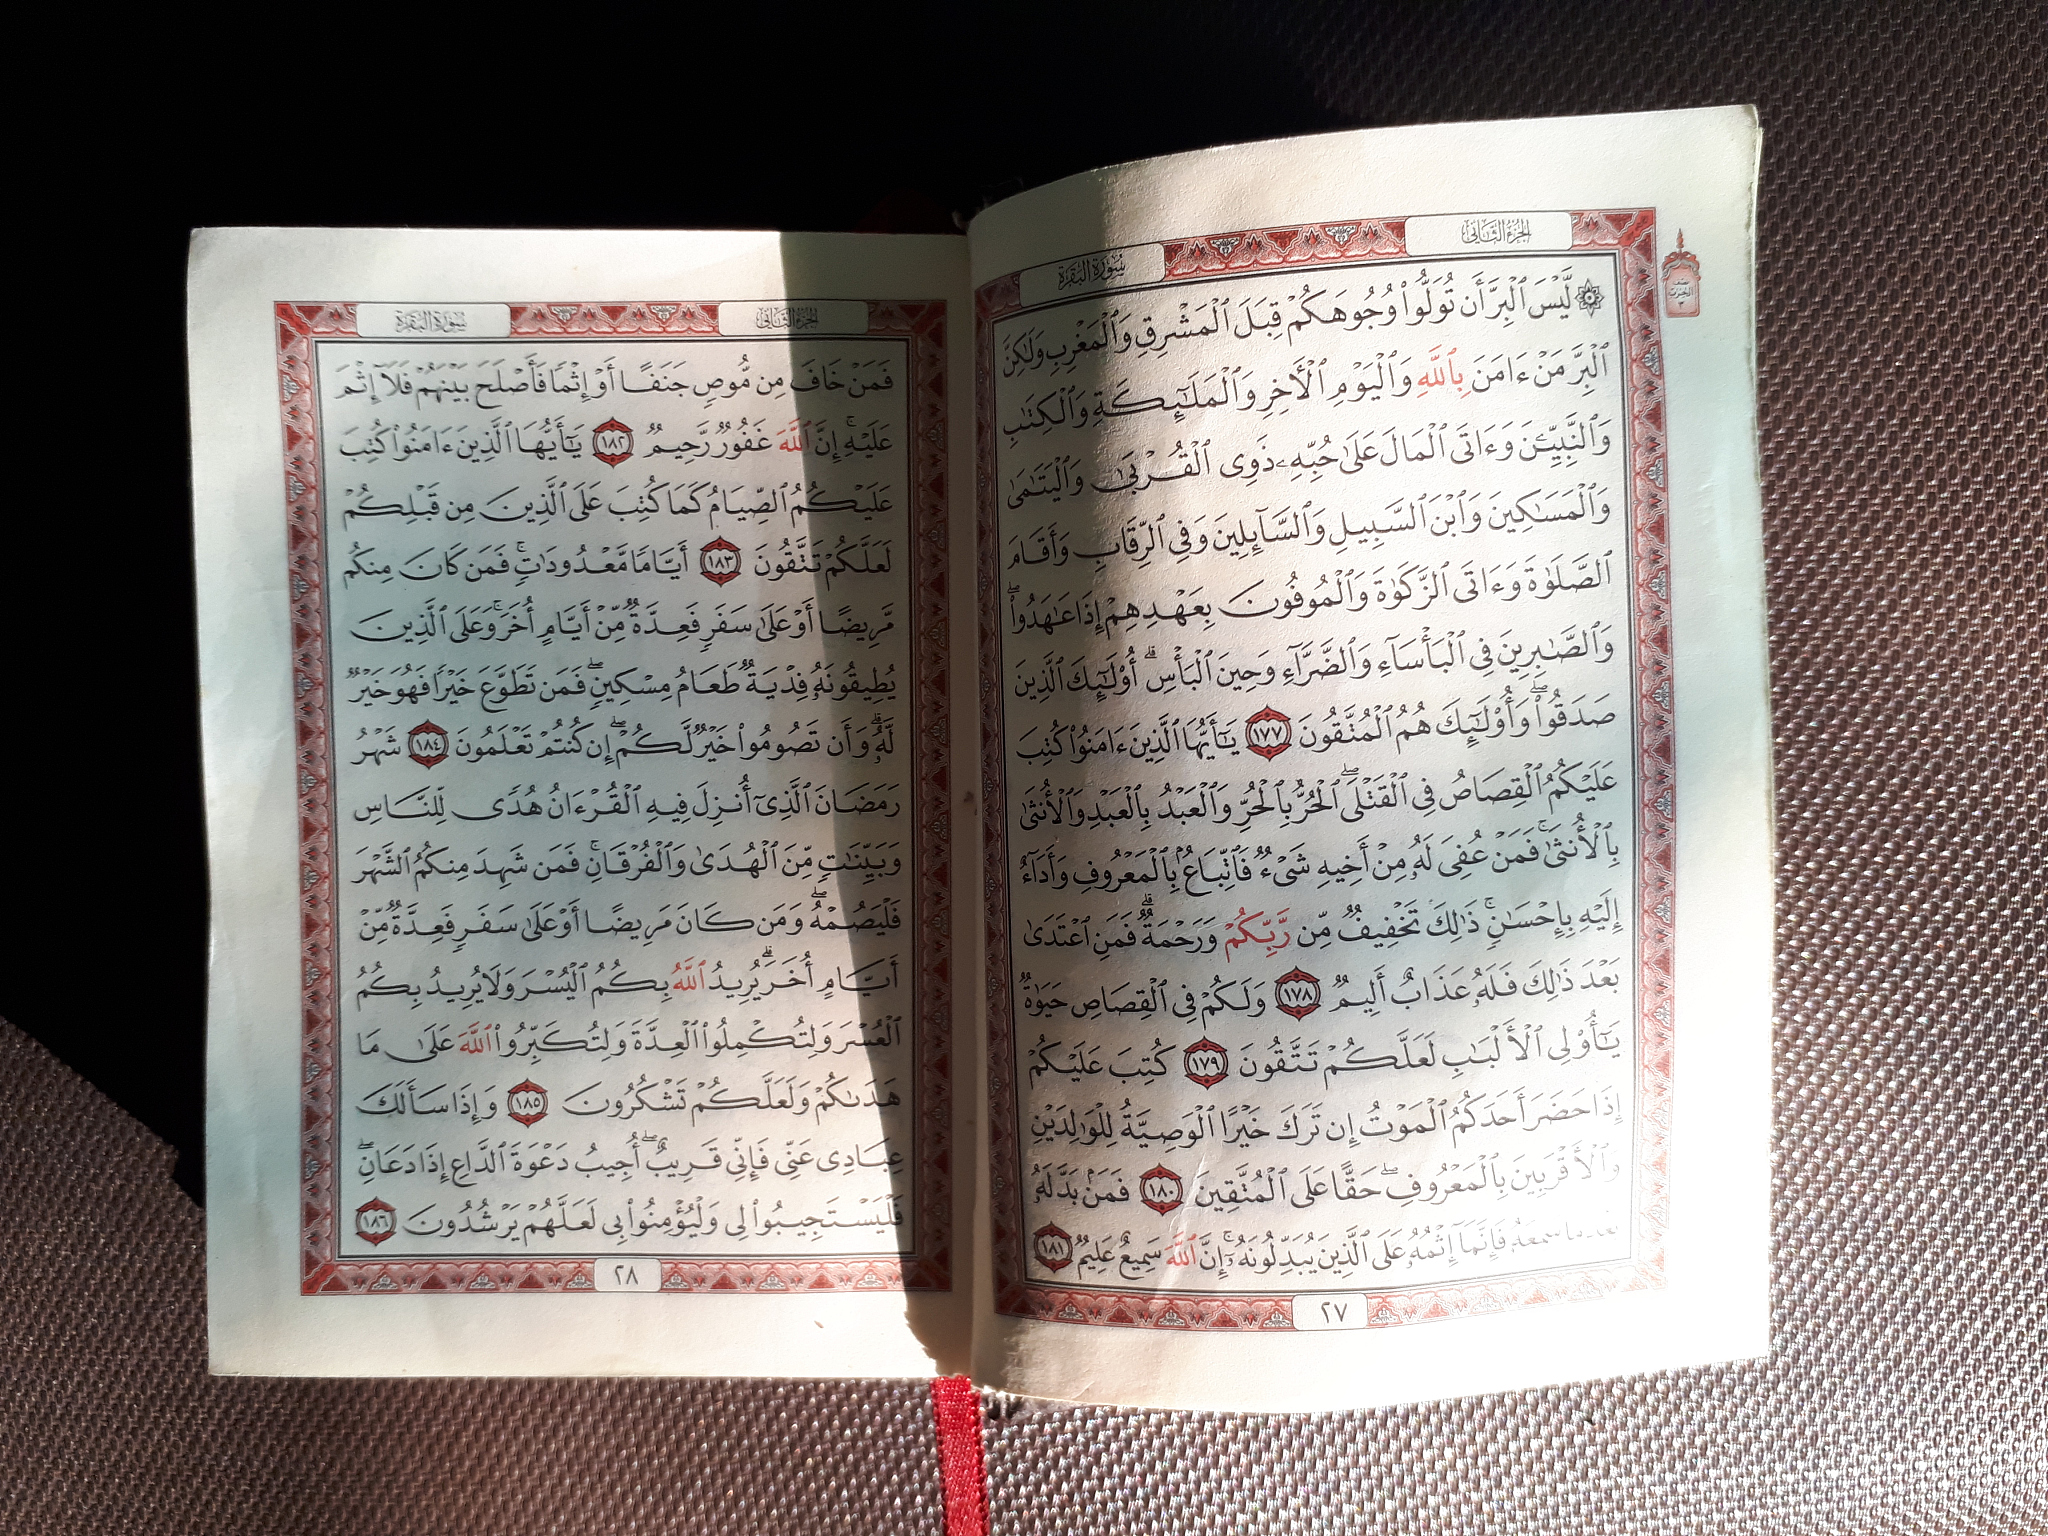 سُورَةُ البَقَرَةِ
الجُزءُ الثَّانِي
۞ لَّيۡسَ ٱلۡبِرَّ أَن تُوَلُّواْ وُجُوهَكُمۡ قِبَلَ ٱلۡمَشۡرِقِ وَٱلۡمَغۡرِبِ وَلَٰكِنَّ
ٱلۡبِرَّ مَنۡ ءَامَنَ بِٱللَّهِ وَٱلۡيَوۡمِ ٱلۡأٓخِرِ وَٱلۡمَلَٰٓئِكَةِ وَٱلۡكِتَٰبِ
وَٱلنَّبِيِّـۧنَ وَءَاتَى ٱلۡمَالَ عَلَىٰ حُبِّهِۦ ذَوِي ٱلۡقُرۡبَىٰ وَٱلۡيَتَٰمَىٰ
وَٱلۡمَسَٰكِينَ وَٱبۡنَ ٱلسَّبِيلِ وَٱلسَّآئِلِينَ وَفِي ٱلرِّقَابِ وَأَقَامَ
ٱلصَّلَوٰةَ وَءَاتَى ٱلزَّكَوٰةَ وَٱلۡمُوفُونَ بِعَهۡدِهِمۡ إِذَا عَٰهَدُواْۖ
وَٱلصَّٰبِرِينَ فِي ٱلۡبَأۡسَآءِ وَٱلضَّرَّآءِ وَحِينَ ٱلۡبَأۡسِۗ أُوْلَٰٓئِكَ ٱلَّذِينَ
صَدَقُواْۖ وَأُوْلَٰٓئِكَ هُمُ ٱلۡمُتَّقُونَ ١٧٧ يَٰٓأَيُّهَا ٱلَّذِينَ ءَامَنُواْ كُتِبَ
عَلَيۡكُمُ ٱلۡقِصَاصُ فِي ٱلۡقَتۡلَىۖ ٱلۡحُرُّ بِٱلۡحُرِّ وَٱلۡعَبۡدُ بِٱلۡعَبۡدِ وَٱلۡأُنثَىٰ
بِٱلۡأُنثَىٰۚ فَمَنۡ عُفِيَ لَهُۥ مِنۡ أَخِيهِ شَيۡءٞ فَٱتِّبَاعُۢ بِٱلۡمَعۡرُوفِ وَأَدَآءٌ
إِلَيۡهِ بِإِحۡسَٰنٖۗ ذَٰلِكَ تَخۡفِيفٞ مِّن رَّبِّكُمۡ وَرَحۡمَةٞۗ فَمَنِ ٱعۡتَدَىٰ
بَعۡدَ ذَٰلِكَ فَلَهُۥ عَذَابٌ أَلِيمٞ ١٧٨ وَلَكُمۡ فِي ٱلۡقِصَاصِ حَيَوٰةٞ
يَٰٓأُوْلِي ٱلۡأَلۡبَٰبِ لَعَلَّكُمۡ تَتَّقُونَ ١٧٩ كُتِبَ عَلَيۡكُمۡ
إِذَا حَضَرَ أَحَدَكُمُ ٱلۡمَوۡتُ إِن تَرَكَ خَيۡرًا ٱلۡوَصِيَّةُ لِلۡوَٰلِدَيۡنِ
وَٱلۡأَقۡرَبِينَ بِٱلۡمَعۡرُوفِۖ حَقًّا عَلَى ٱلۡمُتَّقِينَ ١٨٠ فَمَنۢ بَدَّلَهُۥ
بَعۡدَ مَا سَمِعَهُۥ فَإِنَّمَآ إِثۡمُهُۥ عَلَى ٱلَّذِينَ يُبَدِّلُونَهُۥٓۚ إِنَّ ٱللَّهَ سَمِيعٌ عَلِيمٞ ١٨١
٢٧
الجُزءُ الثَّانِي
سُورَةُ البَقَرَةِ
فَمَنۡ خَافَ مِن مُّوصٖ جَنَفًا أَوۡ إِثۡمٗا فَأَصۡلَحَ بَيۡنَهُمۡ فَلَآ إِثۡمَ
عَلَيۡهِۚ إِنَّ ٱللَّهَ غَفُورٞ رَّحِيمٞ ١٨٢ يَٰٓأَيُّهَا ٱلَّذِينَ ءَامَنُواْ كُتِبَ
عَلَيۡكُمُ ٱلصِّيَامُ كَمَا كُتِبَ عَلَى ٱلَّذِينَ مِن قَبۡلِكُمۡ
لَعَلَّكُمۡ تَتَّقُونَ ١٨٣ أَيَّامٗا مَّعۡدُودَٰتٖۚ فَمَن كَانَ مِنكُم
مَّرِيضًا أَوۡ عَلَىٰ سَفَرٖ فَعِدَّةٞ مِّنۡ أَيَّامٍ أُخَرَۚ وَعَلَى ٱلَّذِينَ
يُطِيقُونَهُۥ فِدۡيَةٞ طَعَامُ مِسۡكِينٖۖ فَمَن تَطَوَّعَ خَيۡرٗا فَهُوَ خَيۡرٞ
لَّهُۥۚ وَأَن تَصُومُواْ خَيۡرٞ لَّكُمۡ إِن كُنتُمۡ تَعۡلَمُونَ ١٨٤ شَهۡرُ
رَمَضَانَ ٱلَّذِيٓ أُنزِلَ فِيهِ ٱلۡقُرۡءَانُ هُدٗى لِّلنَّاسِ
وَبَيِّنَٰتٖ مِّنَ ٱلۡهُدَىٰ وَٱلۡفُرۡقَانِۚ فَمَن شَهِدَ مِنكُمُ ٱلشَّهۡرَ
فَلۡيَصُمۡهُۖ وَمَن كَانَ مَرِيضًا أَوۡ عَلَىٰ سَفَرٖ فَعِدَّةٞ مِّنۡ
أَيَّامٍ أُخَرَۗ يُرِيدُ ٱللَّهُ بِكُمُ ٱلۡيُسۡرَ وَلَا يُرِيدُ بِكُمُ
ٱلۡعُسۡرَ وَلِتُكۡمِلُواْ ٱلۡعِدَّةَ وَلِتُكَبِّرُواْ ٱللَّهَ عَلَىٰ مَا
هَدَىٰكُمۡ وَلَعَلَّكُمۡ تَشۡكُرُونَ ١٨٥ وَإِذَا سَأَلَكَ
عِبَادِي عَنِّي فَإِنِّي قَرِيبٌۖ أُجِيبُ دَعۡوَةَ ٱلدَّاعِ إِذَا دَعَانِۖ
فَلۡيَسۡتَجِيبُواْ لِي وَلۡيُؤۡمِنُواْ بِي لَعَلَّهُمۡ يَرۡشُدُونَ ١٨٦
٢٨